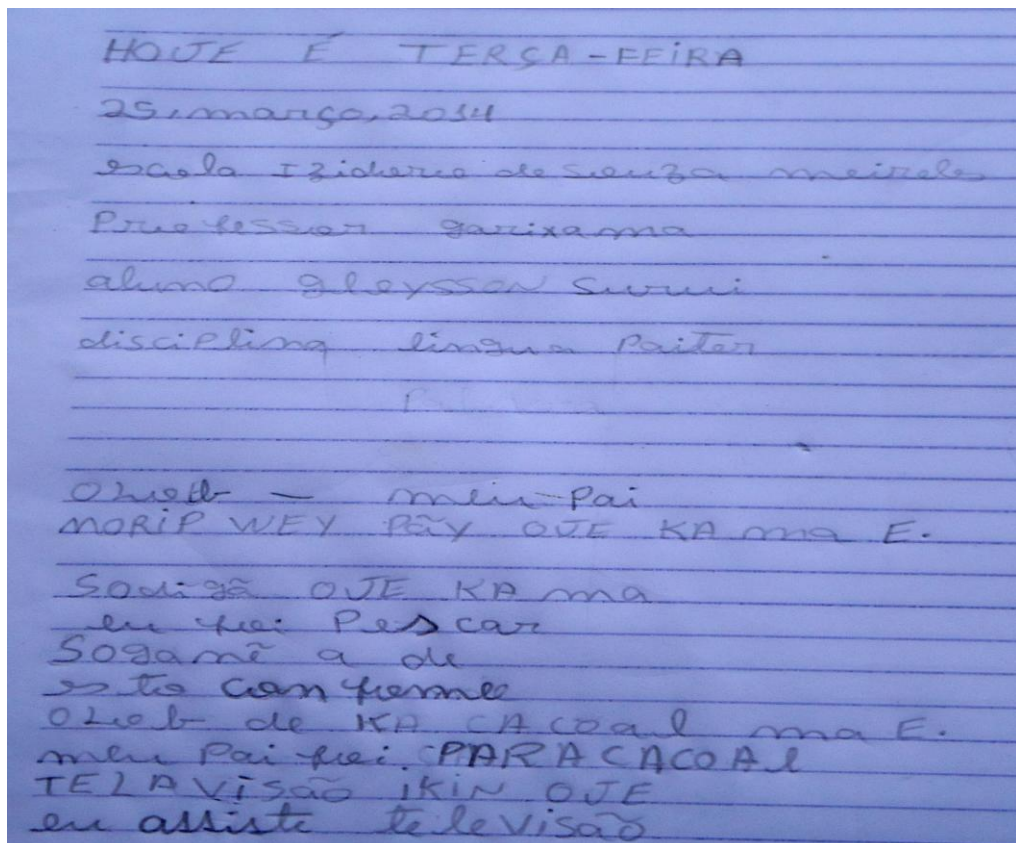 HOJE É TERÇA-FEIRA
25, março, 2014
escola Izidorio de souza meireles
Professor garixama
aluno gleysson Surui
disciplina língua Paiter
Ozob — meu-Pai
MORIP WEY PÃY OJE KA ma E.
Sodigã OJE KA ma
eu foi Pescar
Sogamẽ a de
esto com fome
Ozob de KA CACOAL ma E.
meu Pai foi. PARA CACOAl
TELAVisão iKiN OJE
eu assiste televisão